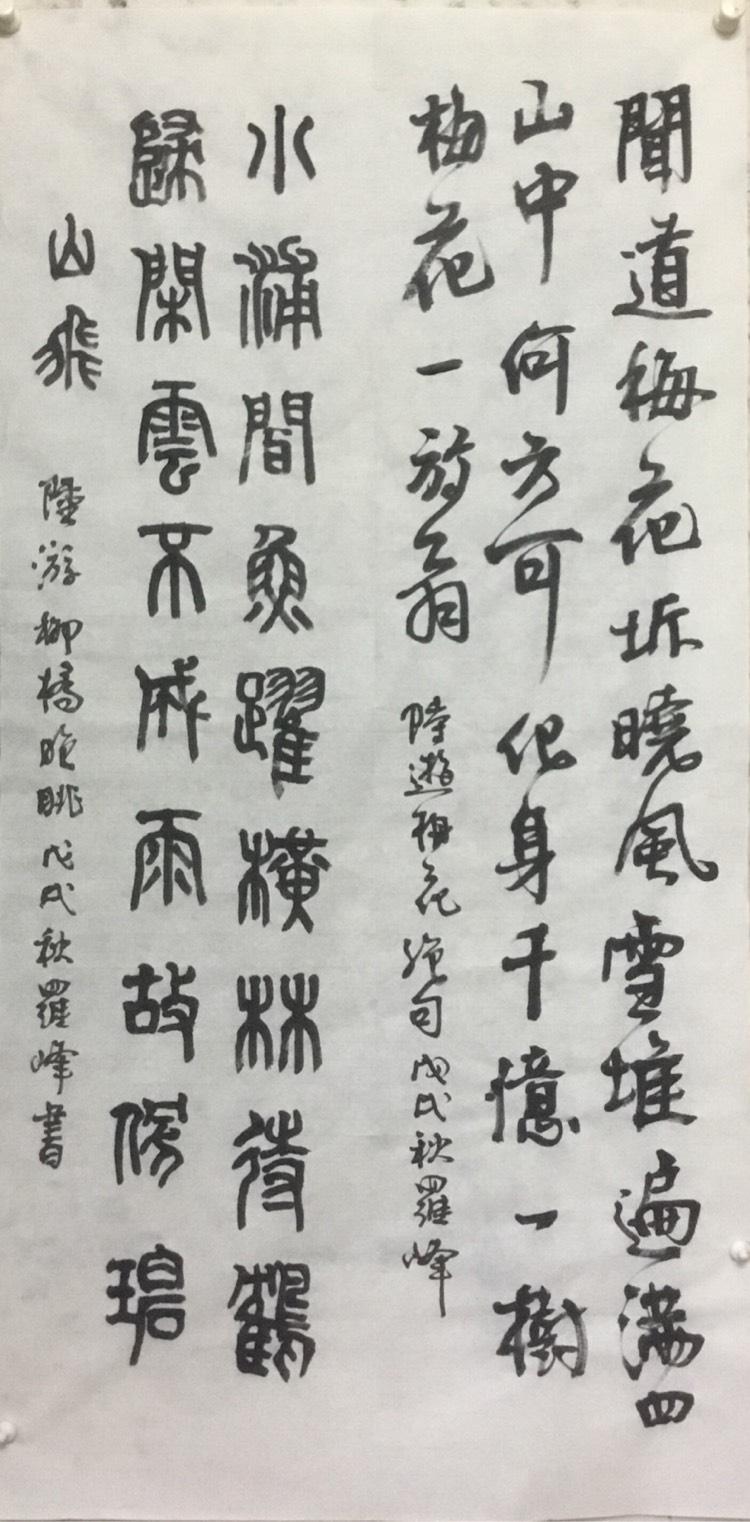 聞道梅花坼曉風雪堆遍滿四
山中何方可化身千憶一樹
梅花一放翁 陸遊梅花絕句戊戌秋羅峰
水浦間魚躍橫林待鶴
歸閑雲不成雨故傍碧
山飛 陸游柳橋晚眺戊戌秋羅峰書